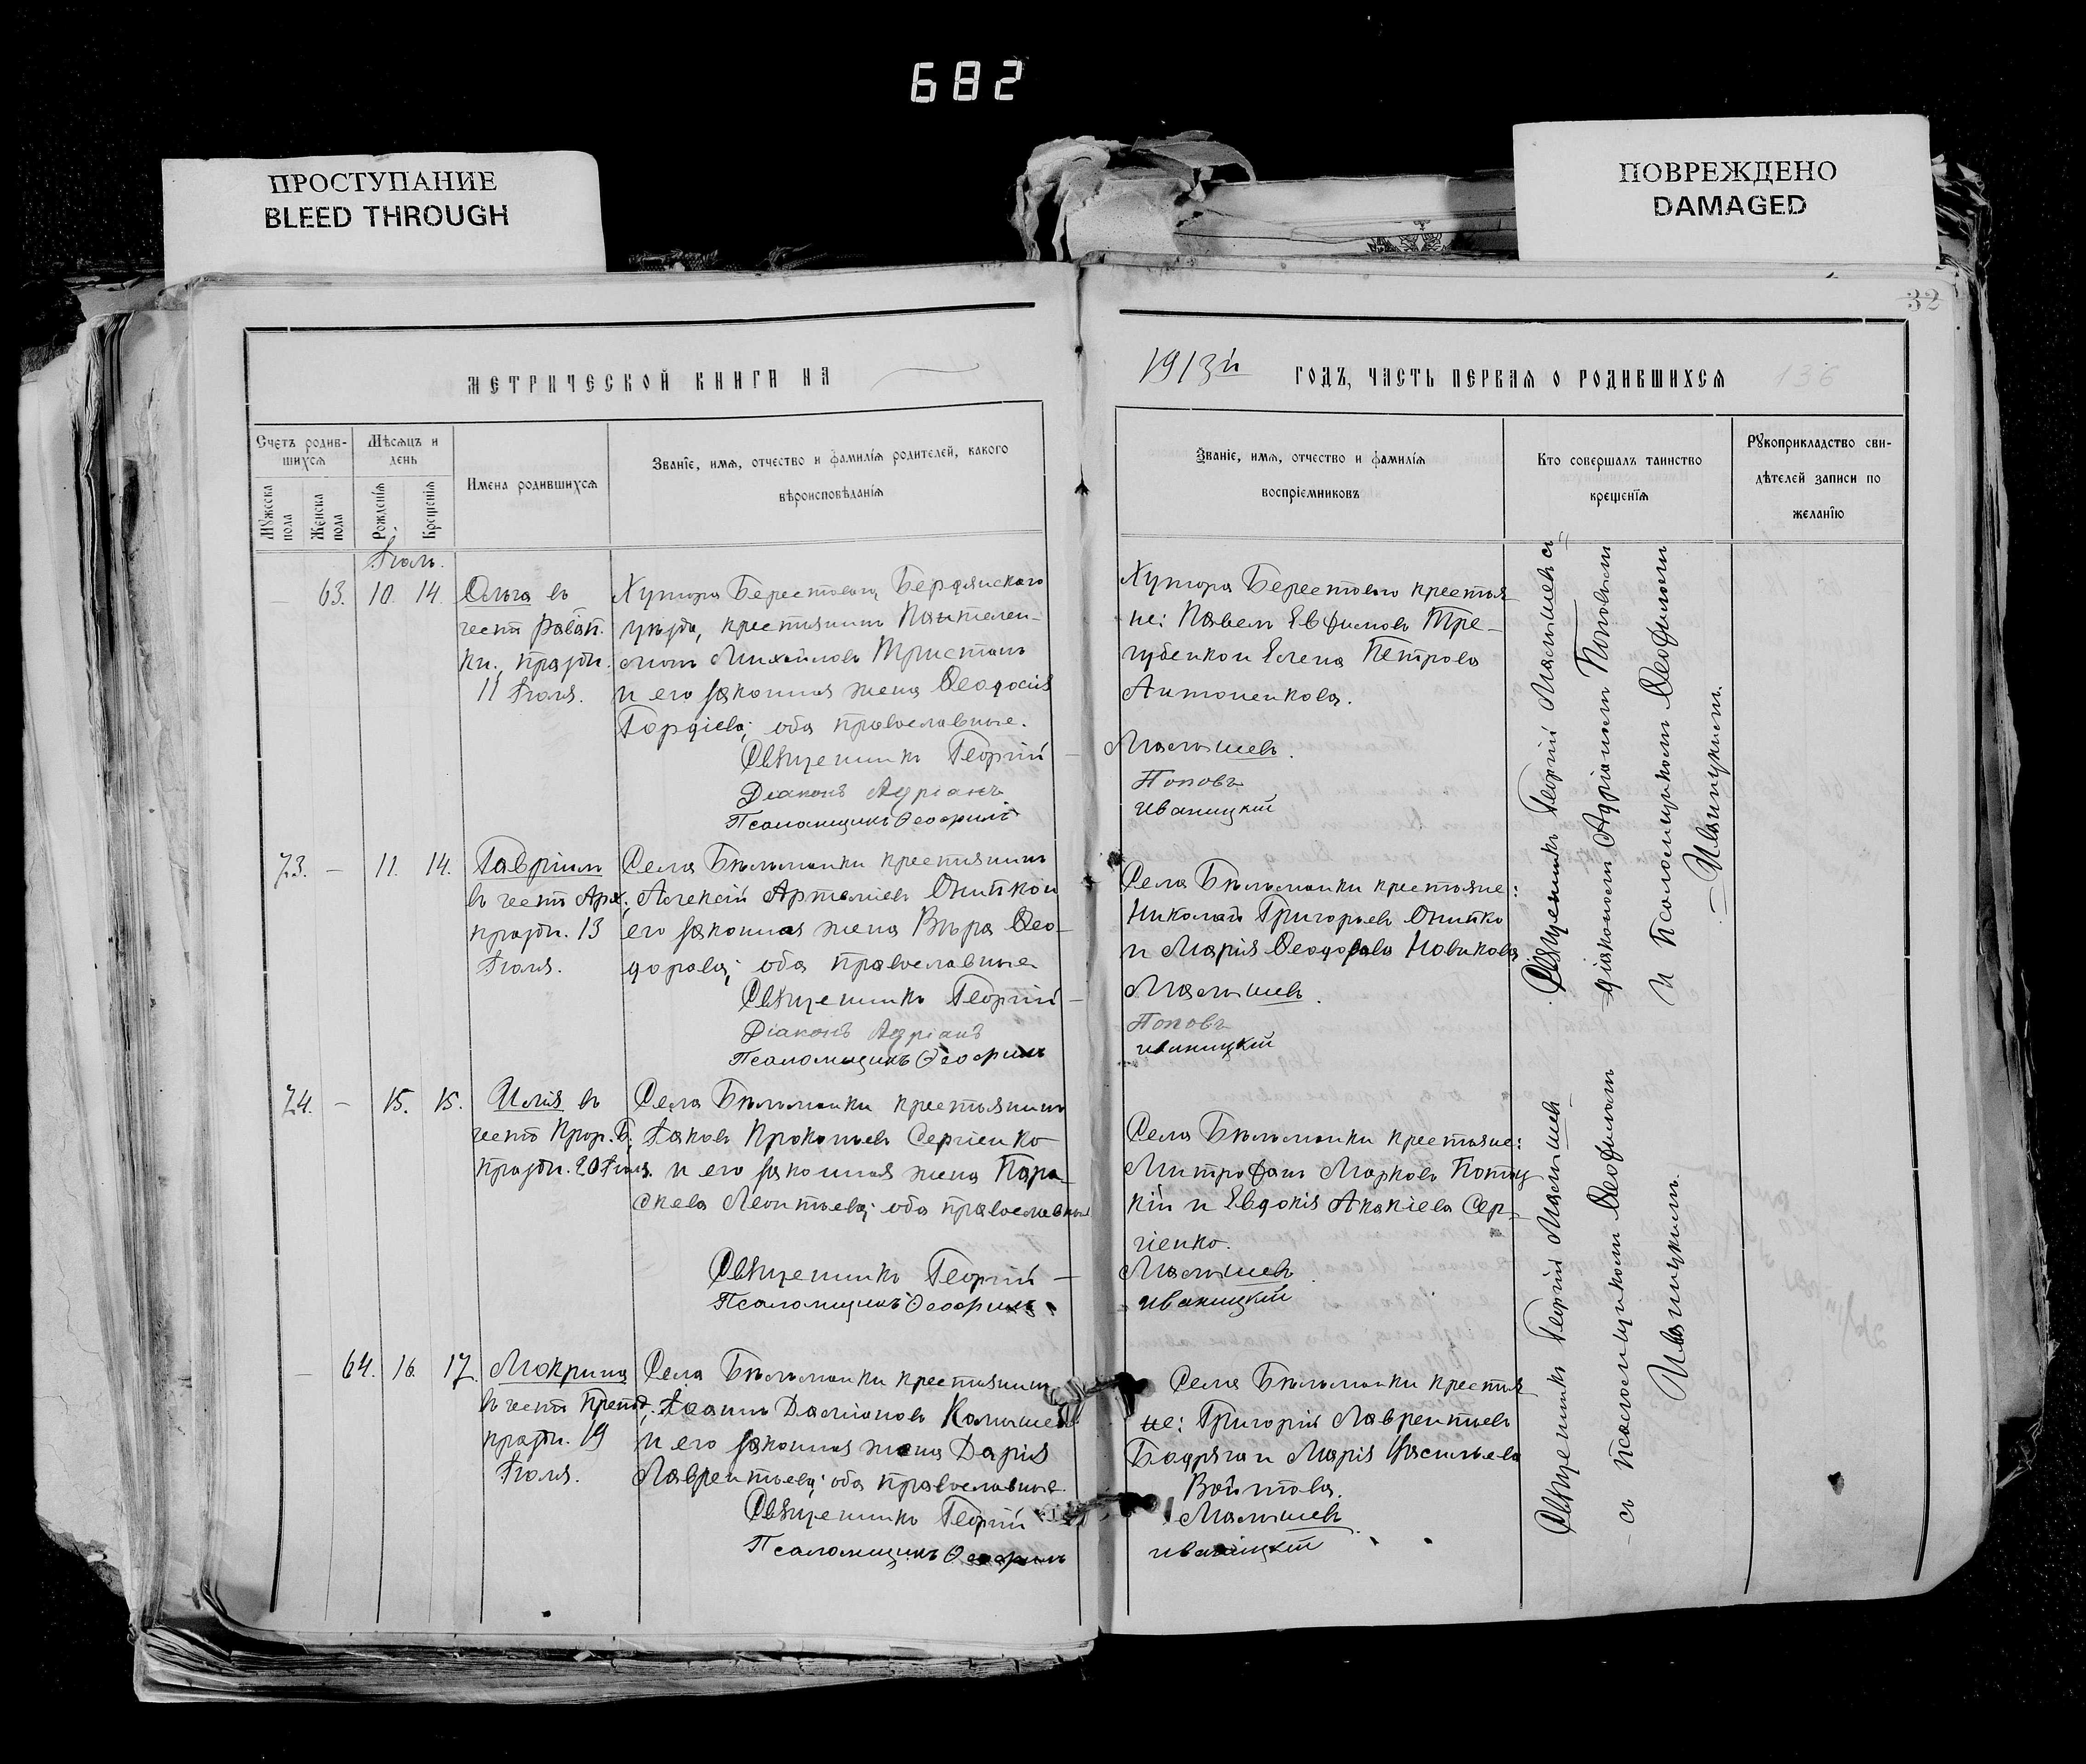 682
ПРОСТУПАНИЕ
BLEED THROUGH
ПОВРЕЖДЕНО
DAMAGED
32
МЕТРИЧЕСКОЙ КНИГИ НА
1913й ГОДЪ, ЧАСТЬ ПЕРВАЯ О РОДИВШИХСЯ 136
Счетъ родив-
шихся
Мужеска пола
Женска пола
Мѣсяцъ и
день
Рожденія
Крещенія
Имена родившихся
Званіе, имя, отчество и фамилія родителей, какого
вѣроисповѣданія
Званіе, имя, отчество и фамилія
воспріемниковъ
Кто совершалъ таинство
крещенія
Рукоприкладство сви-
дѣтелей записи по
желанію
Іюль.
63. 10. 14.
Ольга въ
честь равап.
кн. праздн.
11 Іюля.
Хутора Берестоваго Бердянскаго
уѣзда, крестьянинъ Пантелеи-
монъ Михайловъ Тристанъ
и его законная жена Ѳеодосія
Гордіева; оба православные.
Священникъ Георгій
Діаконъ Адріанъ
Псаломщикъ Ѳеофилъ
Хутора Берестоваго крестья
не: Павелъ Евфимовъ Тре-
губенко и Елена Петрова
Антоненкова.
Малышевъ.
Поповъ
Иваницкій
Священникъ Георгій Малышевъ съ
діакономъ Адріаномъ Поповымъ
и псаломщикомъ Ѳеофиломъ
Иваницкимъ.
73. – 11. 14.
Гавріилъ
въ честь Арх.
праздн. 13
Іюля.
Села Бѣльманки крестьянинъ
Алексій Артеміевъ Онипко и
его законная жена Вѣра Ѳео-
дорова; оба православные
Священникъ Георгій –
Діаконъ Адріанъ
Псаломщикъ Ѳеофилъ
Села Бѣльманки крестьяне:
Николай Григорьевъ Онипко
и Марія Ѳеодорова Новикова
Малышевъ.
Поповъ
Иваницкій
74. – 15. 15.
Илія въ
честь Прор. Б.
праздн. 20 Іюля.
Села Бѣльманки крестьянинъ
Іаковъ Прокопьевъ Сергіенко
и его законная жена Пара-
скева Леонтьева; оба православные
Священникъ Георгій –
Псаломщикъ Ѳеофилъ
Села Бѣльманки крестьяне:
Митрофанъ Марковъ Потоц
кій и Евдокія Акакіева Сер-
гіенко.
Малышевъ.
Иваницкій
Священникъ Георгій Малышевъ
съ псаломщикомъ Ѳеофиломъ
Иваницкимъ.
– 64. 16. 17.
Мокрина
въ честь Препод.
праздн. 19
Іюля.
Села Бѣльманки крестьянинъ
Іоаннъ Даміановъ
и его законная жена Дарія
Лаврентьева; оба православные.
Священникъ Георгій
Псаломщикъ Ѳеофилъ
Села Бѣльманки крестья
не: Григорій Лаврентьевъ
Бодряга и Марія Васильева
Войтова.
Малышевъ
Иваницкій